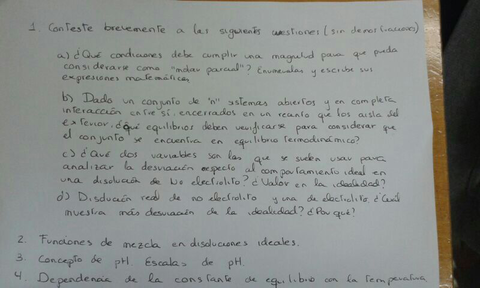 1. Conteste brevemente a las siguientes cuestiones (sin demostraciones)
a) ¿Qué condiciones debe cumplir una magnitud para que pueda
considerarse como "molar parcial"? Enumerelas y escriba sus
expresiones matemáticas
b) Dado un conjunto de "n" sistemas abiertos y en completa
interacción entre sí, encerrados en un recinto que los aisla del
exterior. ¿qué equilibrios deben verificarse para considerar que
el conjunto se encuentra en equilibrio termodinámico?
c) ¿Qué dos variables son las que se suelen usar para
analizar la desviación respecto al comportamiento ideal en
una disolución de no electrolito? ¿Valor en la idealidad?
d) Disolución real de no electrolito y una de electrolito. ¿Cuál
muestra más desviación de la idealidad? ¿Por qué?
2. Funciones de mezcla en disoluciones ideales.
3. Concepto de pH. Escalas de pH.
4. Dependencia de la constante de equilibrio con la temperatura